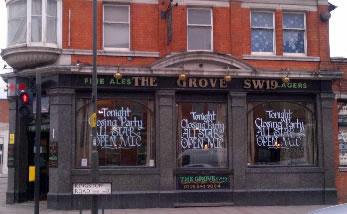 FINE ALES THE GROVE SW19 LAGERS
Tonight
Closing Party
All STARS
OPEN MIC
Tonight
Closing Party
All STARS
OPEN MIC
Tonight
Closing Party
All STARS
OPEN MIC
THE GROVE
KINGSTON
ROAD